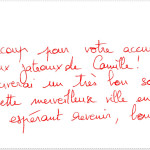 coup pour votre accu
ux gateaux de Camille!
uverai un très bon so
ette merveilleuse ville en
espérant revenir, bon